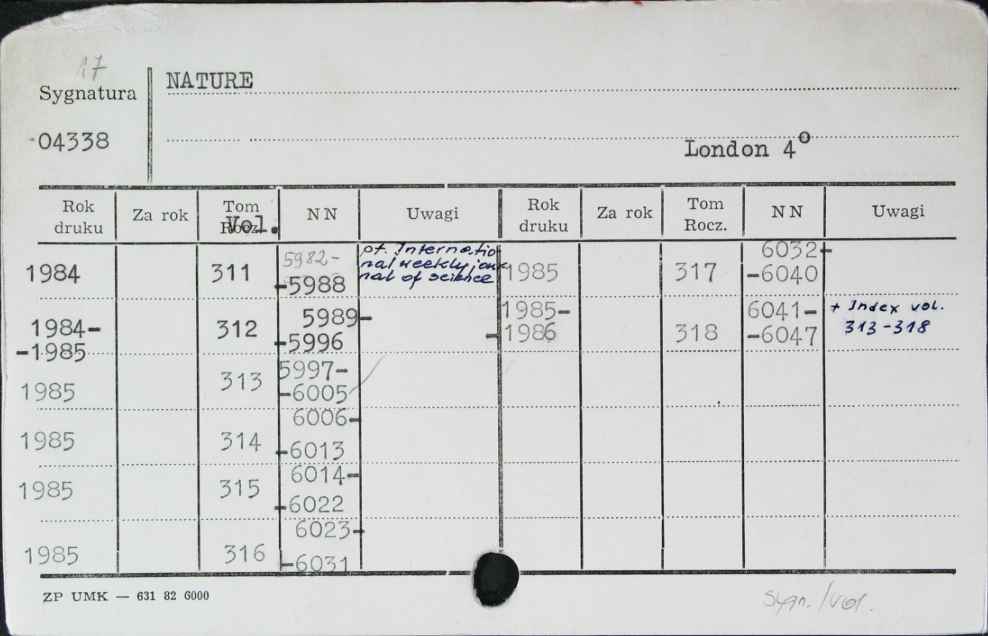 17
Sygnatura NATURE
04338
London 4°
Rok druku Za rok Tom Rocz. Vol. NN Uwagi Rok druku Za rok Tom Rocz. NN Uwagi
1984 311 5982-
-5988 pt. Internatio
nal weekly jour
nal of science
1984-
-1985 312 5989-
-5996
1985 313 5997-
-6005
1985 314 6006-
-6013
1985 315 6014-
-6022
1985 316 6023-
-6031
1985 317 6032-
-6040
1985-
-1986 318 6041-
-6047 + Index vol.
313-318
ZP UMK — 631 82 6000
Sygn./vol.